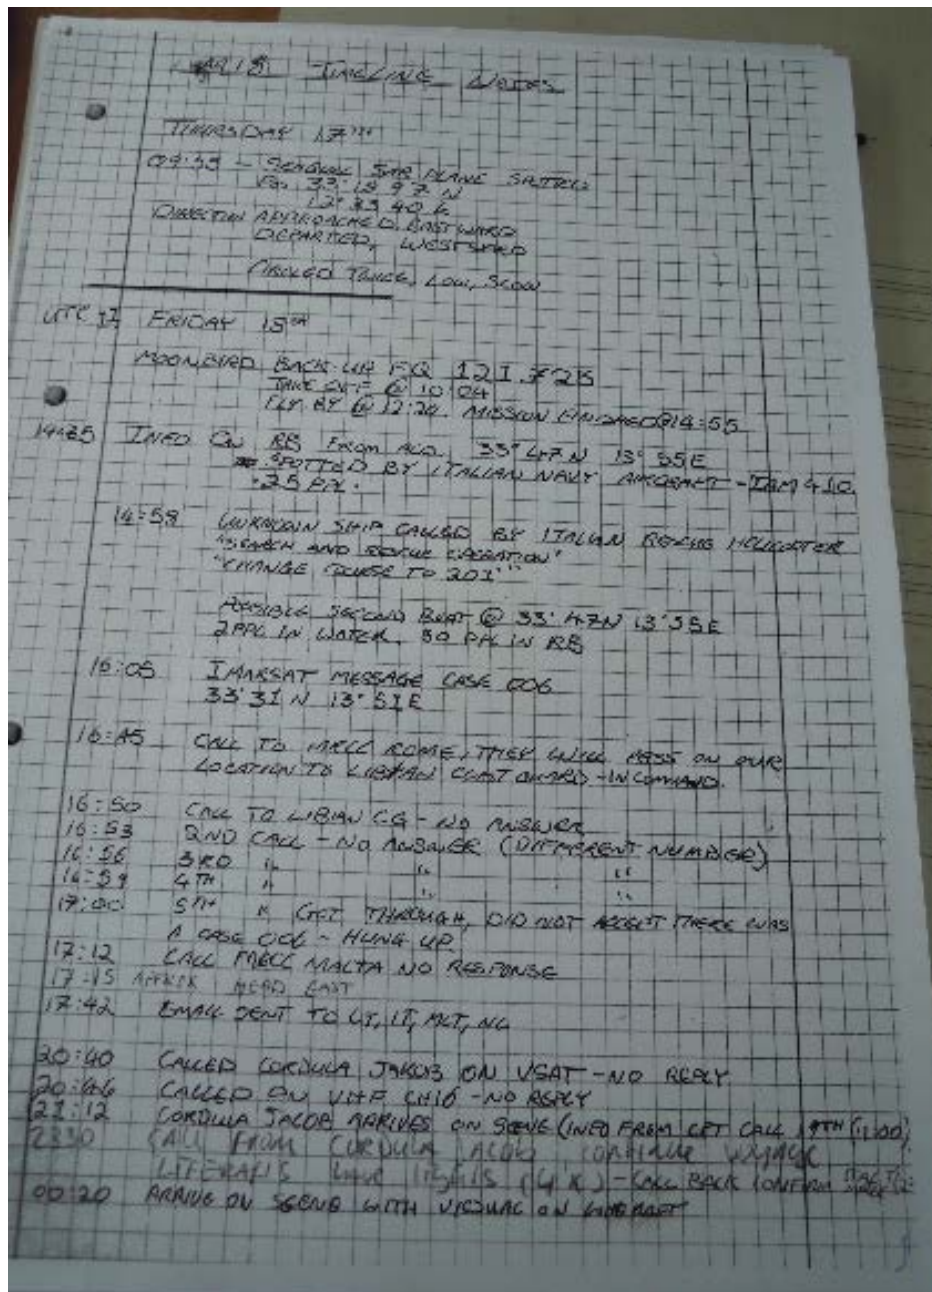 TIMELINE NOTES
THURSDAY 17TH
09:33 - SEAGULL SAR PLANE
33° 18 97 N
12° 33 40 E
DIRECTION APPROACHED, EASTWARD
DEPARTED, WESTWARD
CIRCLED TWICE, LOW, SLOW
UTC +1 FRIDAY 18TH
MOONBIRD BACK-UP FQ 121.725
TAKE OFF @ 10:04
FLY BY @ 12:20. MISSION FINISHED @ 14:55
14:25 INFO ON RB FROM 33° 47 N 13° 55 E
SPOTTED BY ITALIAN NAVY AIRCRAFT - 410.
25 PPL.
14:58 UNKNOWN SHIP CALLED BY ITALIAN RESCUE HELICOPTER
"SEARCH AND RESCUE OPERATION"
"CHANGE COURSE TO 201°"
POSSIBLE SECOND BOAT @ 33° 47N 13° 55E
2PPL IN WATER, 50 PPL IN RB
16:05 IMARSAT MESSAGE CASE 006
33° 31 N 13° 51 E
16:45 CALL TO MRCC ROME, THEY WILL PASS ON OUR
LOCATION TO LIBYAN COAST GUARD - IN COMMAND.
16:50 CALL TO LIBIAN CG - NO ANSWER
16:53 2ND CALL - NO ANSWER (DIFFERENT NUMBER)
16:56 3RD " " "
16:59 4TH " " "
17:00 5TH " GET THROUGH, DID NOT ACCEPT THERE WAS
A CASE 006 - HUNG UP
17:12 CALL MRCC MALTA NO RESPONSE
17:15 APPRX HEAD EAST
17:42 EMAIL SENT TO IT, MLT, NL
20:40 CALLED CORDULA JAKOB ON VSAT - NO REPLY
20:46 CALLED ON VHF CH16 - NO REPLY
21:12 CORDULA JACOB ARRIVES ON SCENE (INFO FROM CALL 19TH 11:00)
2330 CALL FROM CORDULA JACOB
LIFERAFTS HAVE LIGHTS - CALL BACK CONFIRM
00:20 ARRIVE ON SCENE WITH VISUAL ON